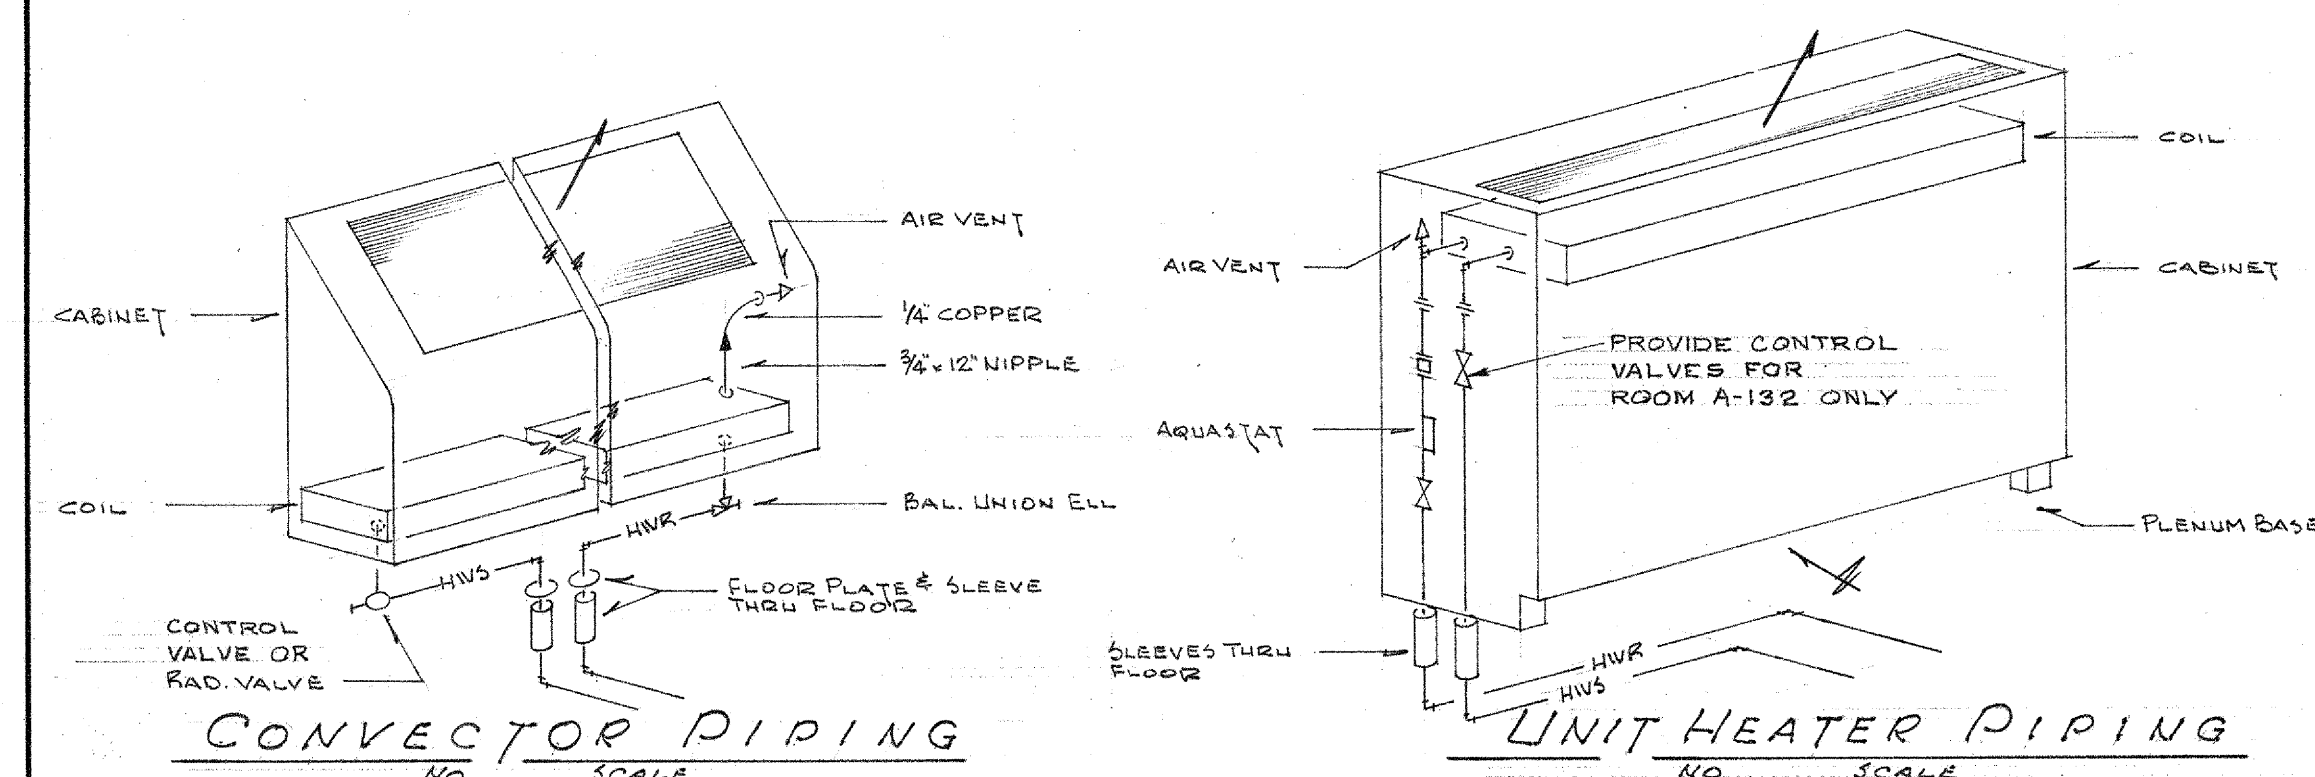 AIR VENT
CABINET
1/4" COPPER
3/4" x 12" NIPPLE
COIL
BAL. UNION ELL
HWR
HWS
FLOOR PLATE & SLEEVE
THRU FLOOR
CONTROL
VALVE OR
RAD. VALVE
CONVECTOR PIPING
NO SCALE
COIL
AIR VENT
CABINET
PROVIDE CONTROL
VALVES FOR
ROOM A-132 ONLY
AQUASTAT
PLENUM BASE
SLEEVES THRU
FLOOR
HWR
HWS
UNIT HEATER PIPING
NO SCALE